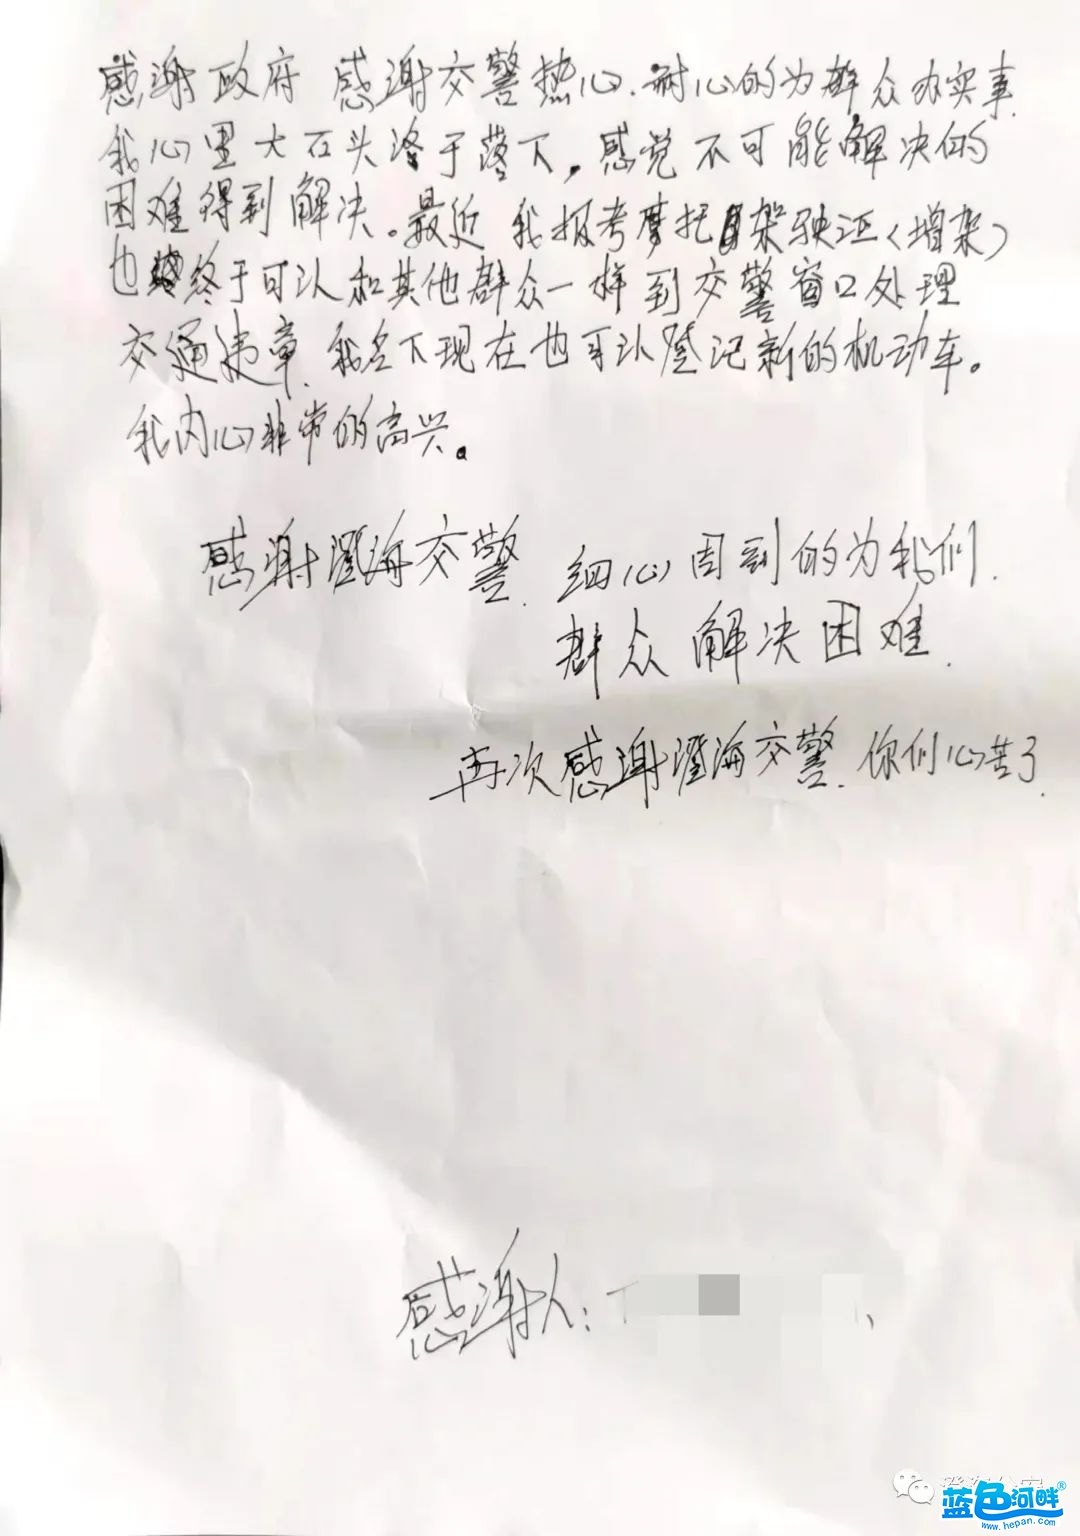 感谢政府 感谢交警热心.耐心的为群众办实事.
我心里大石头终于落下,感觉不可能解决的
困难得到解决。最近 我报考摩托架驶证(增架)
也终于可以和其他群众一样到交警窗口处理
交通违章.我名下现在也可以登记新的机动车。
我内心非常的高兴。
感谢澄海交警.细心周到的为我们.
群众解决困难.
再次感谢澄海交警.你们心苦了.
感谢人:
蓝色河畔®
www.hepan.com